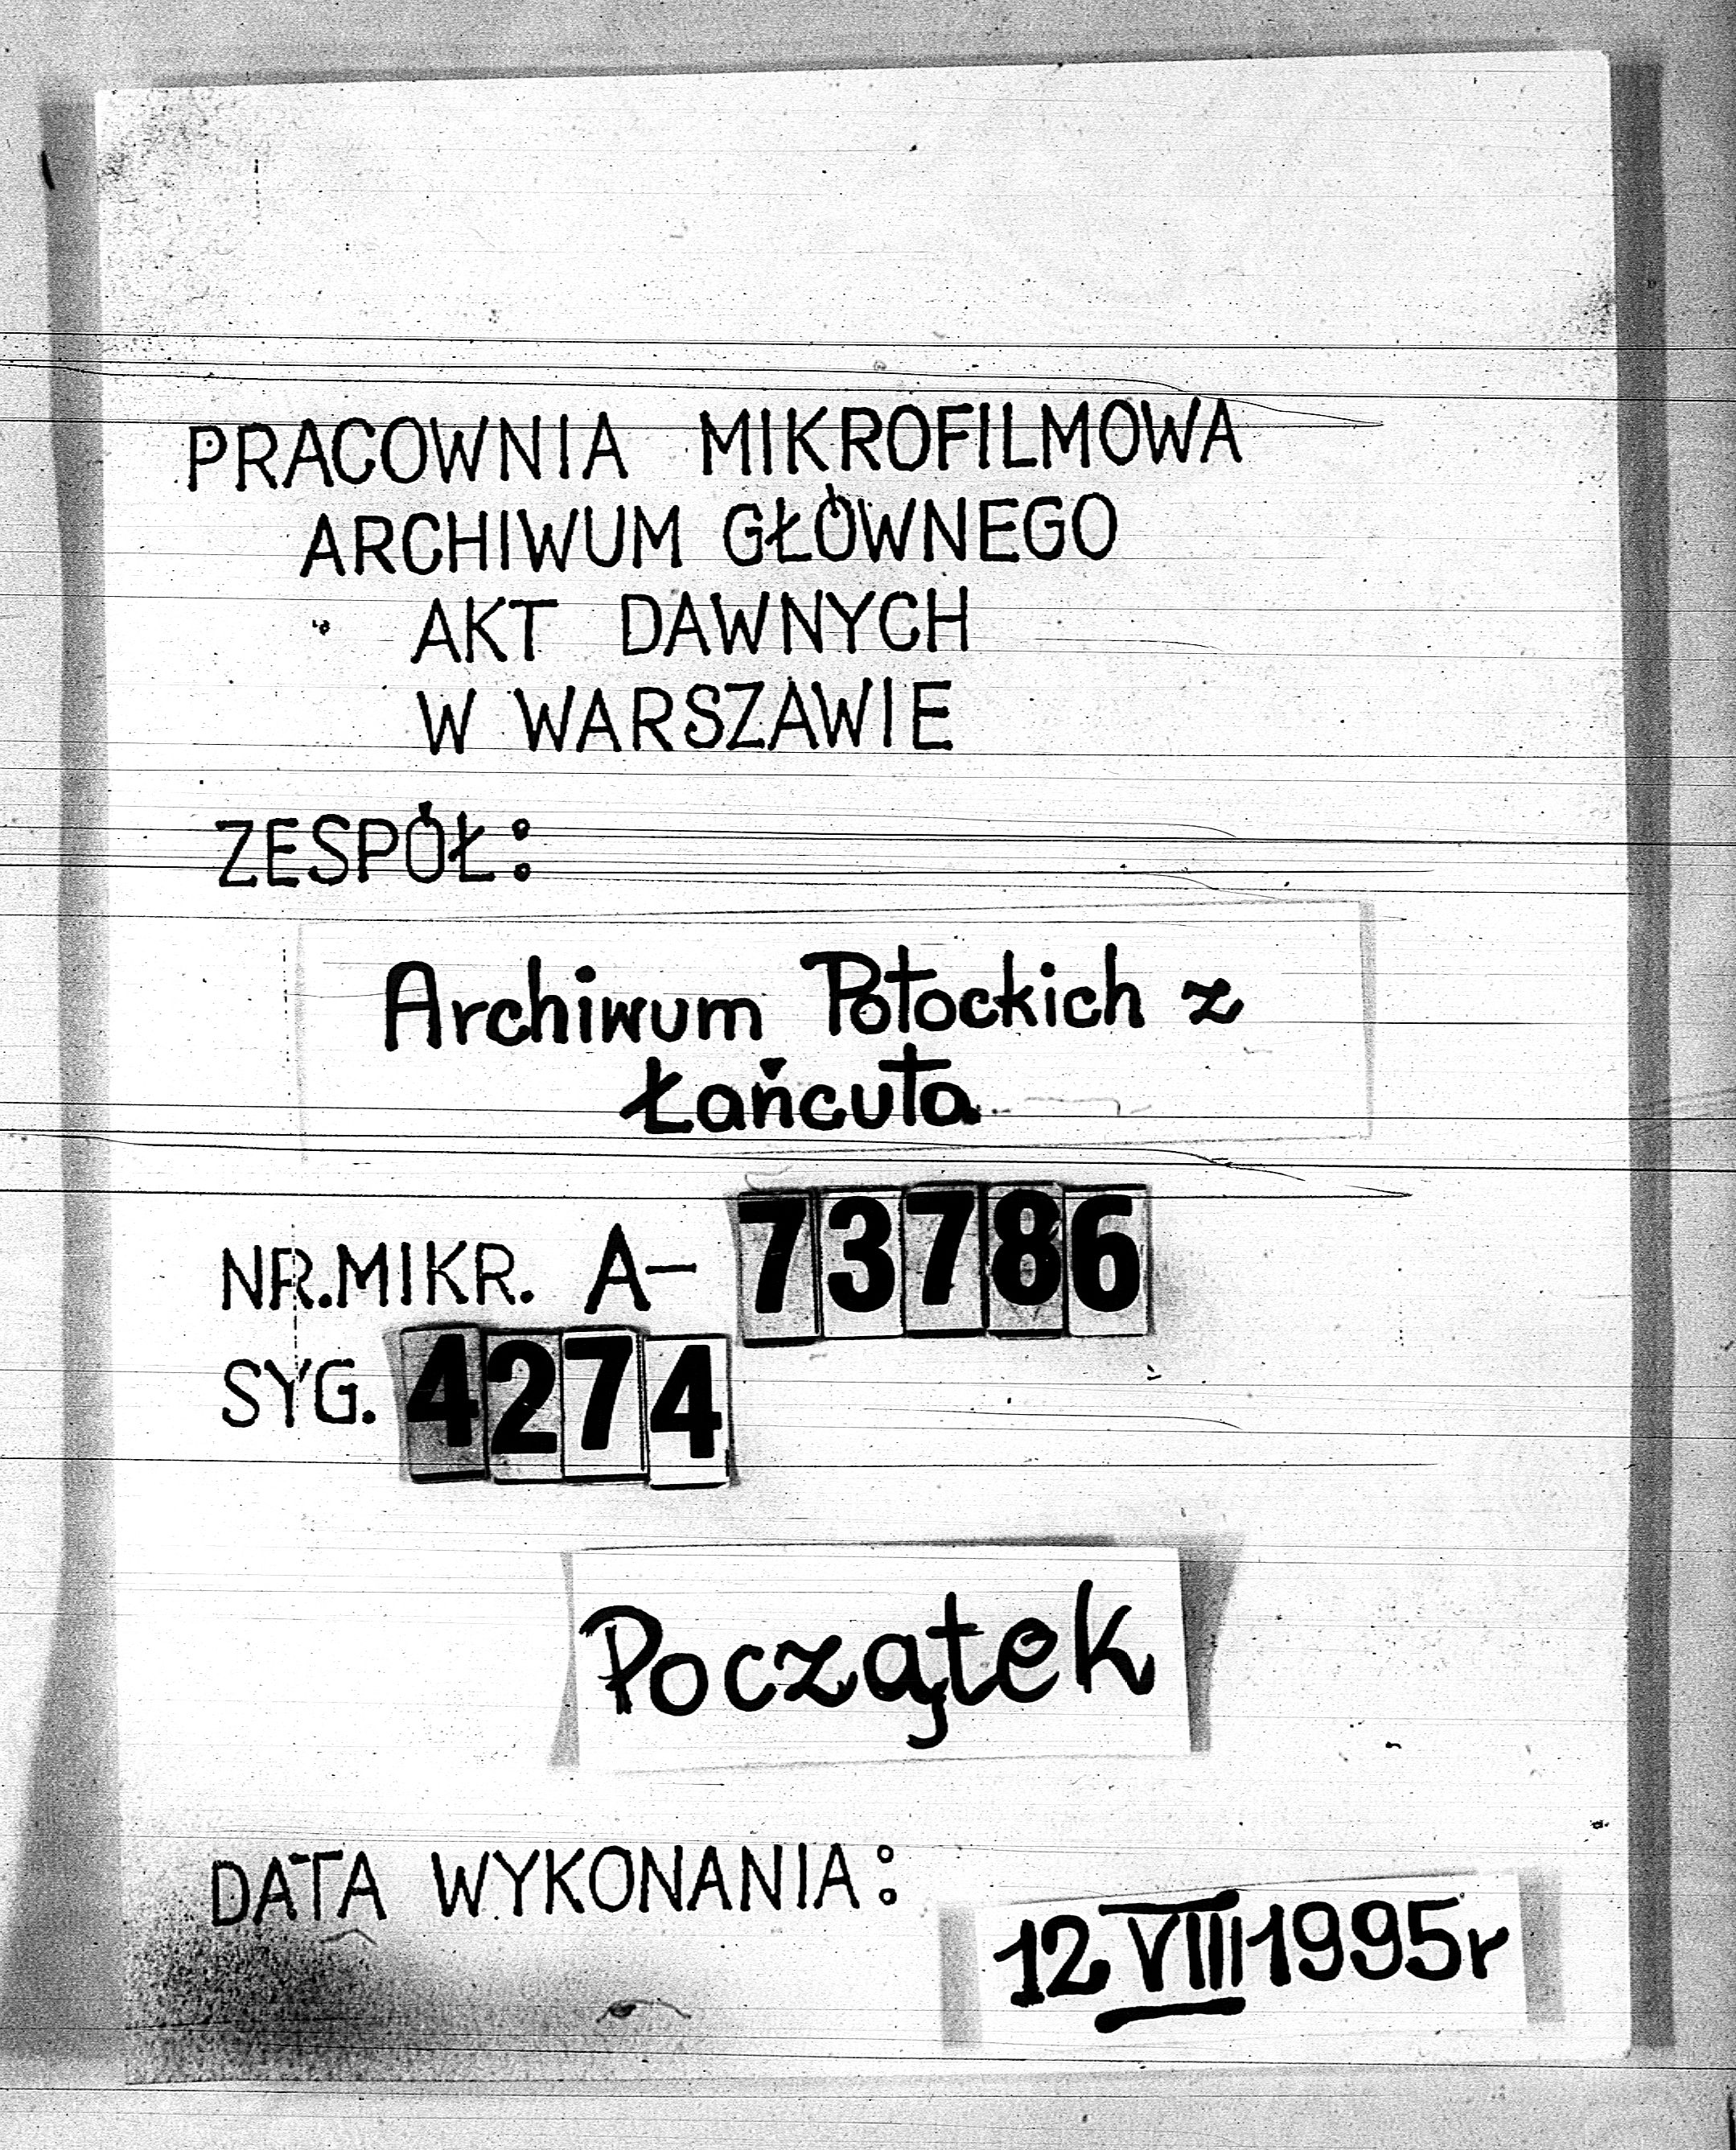 PRACOWNIA MIKROFILMOWA
ARCHIWUM GŁÓWNEGO
AKT DAWNYCH
W WARSZAWIE
ZESPÓŁ:
Archiwum Potockich z
Łańcuta
NR.MIKR. A- 73786
SYG. 4274
Początek
DATA WYKONANIA:
12 VIII 1995r